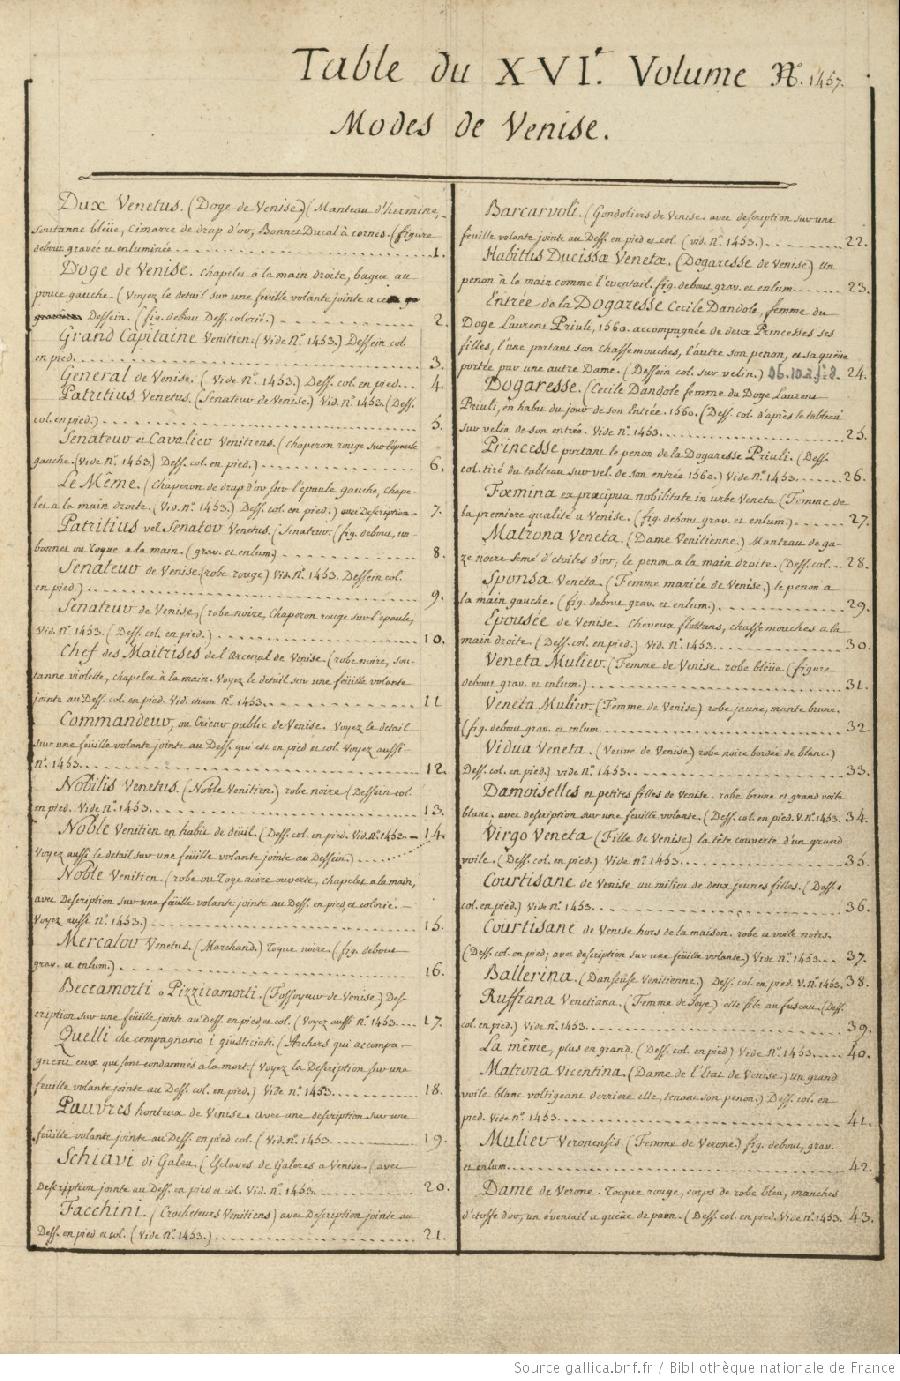 Table du XVI.ᵉ Volume Nº. 1457.
Modes de Venise.
Dux Venetus. (Doge de Venise) (Manteau d'hermine,
soutanne bleüe, cimarre de drap d'or, Bonnet Ducal à cornes. (figure
debout gravée et enluminée 1.
Doge de Venise. chapeau a la main droite, bague au
pouce gauche. (Voyez le detail sur une feuille volante jointe a ce
Dessein. (fig. debout Dess. colorié.) 2.
Grand Capitaine Venitien. (Vide Nº. 1453.) Dessein col.
en pied. 3.
General de Venise. (Vide nº. 1453.) Dess. col. en pied. 4.
Patritius Venetus. (Senateur de Venise.) Vid. nº. 1453. (Dess.
col. en pied.) 5.
Senateur et Cavalier Venitiens. (chaperon rouge sur l'épaule
gauche. (Vide nº. 1453) Dess. col. en pied.) 6.
Le Même. (chaperon de drap d'or sur l'épaule gauche, chape-
let a la main droite. (Vid. nº. 1453.) Dess. col. en pied.) avec Description 7.
Patritius vel Senator Venetus. (Senateur. (fig. debout, un
bonnet ou Toque a la main. (grav. et enlum.) 8.
Senateur de Venise. (robe rouge) Vid. nº. 1453. Dessein col.
en pied) 9.
Senateur de Venise, (robe noire, Chaperon rouge sur l'épaule,
Vid. nº. 1453. (Dess. col. en pied.) 10.
Chef des Maitrises de l'Arcenal de Venise. (robe noire, sou-
tanne violette, chapeau à la main. Voyez le detail sur une feüille volante
jointe au Dess. col. en pied. Vid. etiam nº. 1453. 11
Commandeur, ou Crieur public de Venise. Voyez le detail
sur une feüille volante jointe au Dess. qui est en pied et col. Voyez aussi
nº. 1453. 12.
Nobilis Venetus. (Noble Venitien.) robe noire (Dessein col.
en pied. Vide nº. 1453. 13.
Noble Venitien en habit de deüil. (Dess. col. en pied. Vid. nº. 1453. 14.
Voyez aussi le detail sur une feüille volante jointe au Dessein.)
Noble Venitien. (robe ou Toge noire ouverte, chapeau a la main,
avec Description sur une feüille volante jointe au Dess. en pied, et colorié.
Voyez aussi nº. 1453.) 15.
Mercator Venetus. (Marchand.) Toque noire. (fig. debout
grav. et enlum.) 16.
Beccamorti o Pizzicamorti. (Fossoyeur de Venise.) Des-
cription sur une feüille jointe au Dess. en pied et col. (Voyez aussi nº. 1453. 17.
Quelli che compagnano i giusticiati. (Archers qui accompa-
gnent ceux qui sont condamnés a la mort. (Voyez la Description sur une
feuille volante jointe au Dess. col. en pied.) Vide nº. 1453. 18.
Pauvres honteux de Venise. avec une description sur une
feüille volante jointe au Dess. en pied col. (Vid. nº. 1453. 19.
Schiavi di Galea. (Esclaves de Galeres a Venise. (avec
Description jointe au Dess. en pied et col. Vid. nº. 1453. 20.
Facchini. (Crocheteurs Venitiens) avec Description jointe au
Dess. en pied et col. (Vide nº. 1453.) 21.
Barcarvoli. (Gondoliers de Venise. avec description sur une
feuille volante jointe au Dess. en pied et col. (vid. nº. 1453.) 22.
Habittus Ducissa Veneta. (Dogaresse de Venise) Un
penon à la main comme l'eventail. fig. debout grav. et enlum. 23.
Entrée de la Dogaresse Cecile Dandole, femme du
Doge Laurent Priuli, 1560. accompagnée de deux Princesses ses
filles, l'une portant son chassemouches, l'autre son penon, et sa queüe
portée par une autre Dame. (Dessein col. sur velin.) 24.
Dogaresse. (Cecile Dandole femme du Doge Laurent
Priuli, en habit du jour de son Entrée. 1560. (Dess. col. d'après le tableau
sur velin de son entrée. Vide nº. 1453. 25.
Princesse portant le penon de la Dogaresse Priuli. (Dess.
col. tiré du tableau sur vel. de son entrée 1560.) Vid. nº. 1453. 26.
Fœmina ex præcipua nobilitate in urbe Veneta (Femme de
la premiere qualité a Venise. (fig. debout grav. et enlum.) 27.
Matrona Veneta. (Dame Venitienne.) Manteau de ga-
ze noire semé d'etoiles d'or, le penon a la main droite. (Dess. col. 28.
Sponsa Veneta. (Femme mariée de Venise.) le penon a
la main gauche. (fig. debout grav. et enlum.) 29.
Epousée de Venise. Cheveux flottans, chassemouches a la
main droite. (Dess. col. en pied.) Vid. nº. 1453. 30.
Veneta Mulier. (Femme de Venise. robe bleüe (figure
debout grav. et enlum.) 31.
Veneta Mulier. (Femme de Venise) robe jaune, mante brune.
(fig. debout grav. et enlum. 32.
Vidua Veneta. (Veuve de Venise) robe noire bordée de blanc.)
Dess. col. en pied.) vide nº. 1453. 33.
Damoiselles et petites filles de Venise. robe brune et grand voile
blanc. avec description sur une feuille volante. (Dess. col. en pied. V. nº. 1453. 34.
Virgo Veneta (Fille de Venise) la tête couverte d'un grand
voile. (Dess. col. en pied.) Vide nº. 1453. 35.
Courtisane de Venise au milieu de deux jeunes filles. (Dess.
col. en pied.) Vide nº. 1453. 36.
Courtisane de Venise hors de la maison. robe et voile noirs.
(Dess. col. en pied; avec description sur une feüille volante.) Vide nº. 1453. 37.
Ballerina. (Danseüse Venitienne.) Dess. col. en pied. V. nº. 1453. 38.
Ruffiana Venetiana. (Femme de Joye) elle file au fuseau. (Dess.
col. en pied.) Vide nº. 1453. 39.
La même, plus en grand. (Dess. col. en pied) Vide nº. 1453. 40.
Matrona Vicentina. (Dame de l'Etat de Venise.) Un grand
voile blanc voltigeant derriere elle, tenant son penon.) Dess. col. en
pied. Vide nº. 1453. 41.
Mulier Veronensis (Femme de Verone.) fig. debout, grav.
et enlum. 42.
Dame de Verone. Tocque rouge, corps de robe bleu, manches
d'etoffe d'or, un eventail a queüe de paon. (Dess. col. en pied. Vide nº. 1453. 43.
Source gallica.bnf.fr / Bibliothèque nationale de France